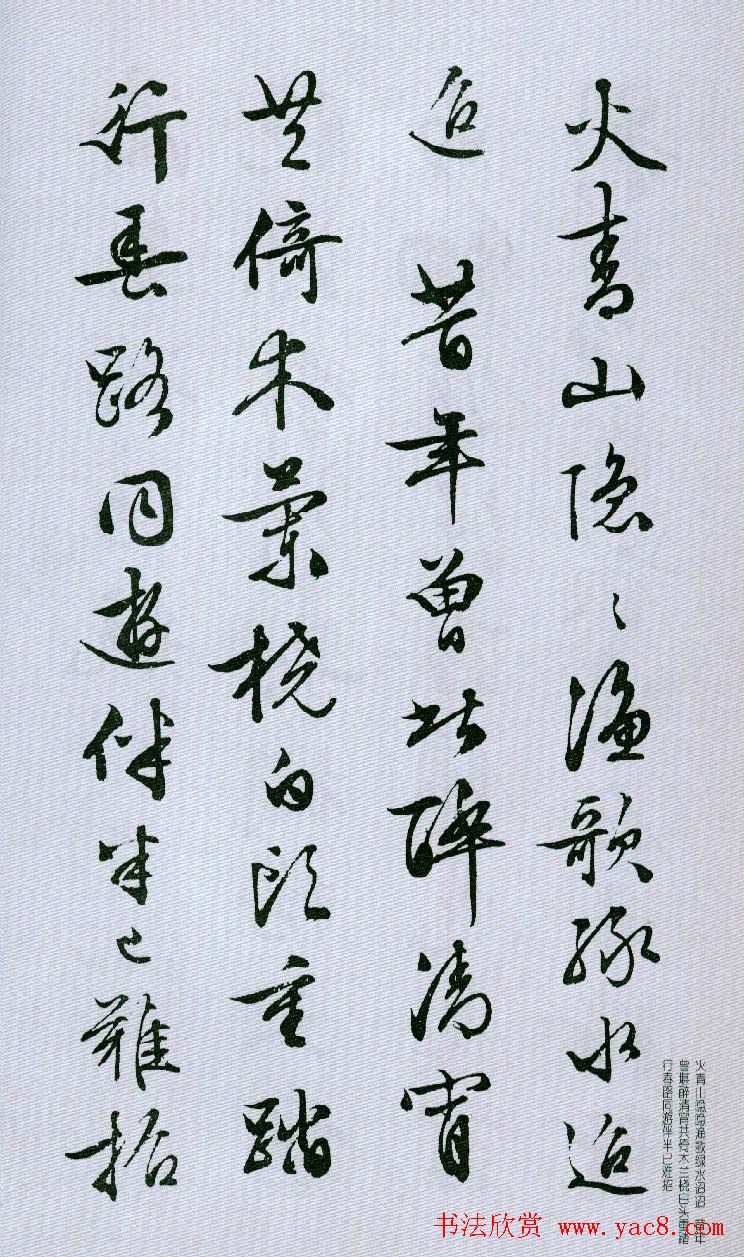 火青山隐々渔歌绿水迢
迢 昔年曾此醉清宵
共倚木兰桡白头重踏
行春路同游伴半已难招
火青山隐隐渔歌绿水迢迢 昔年
曾堪醉清宵共倚木兰桡白头重踏
行春路同游伴半已难招
书法欣赏 www.yac8.com